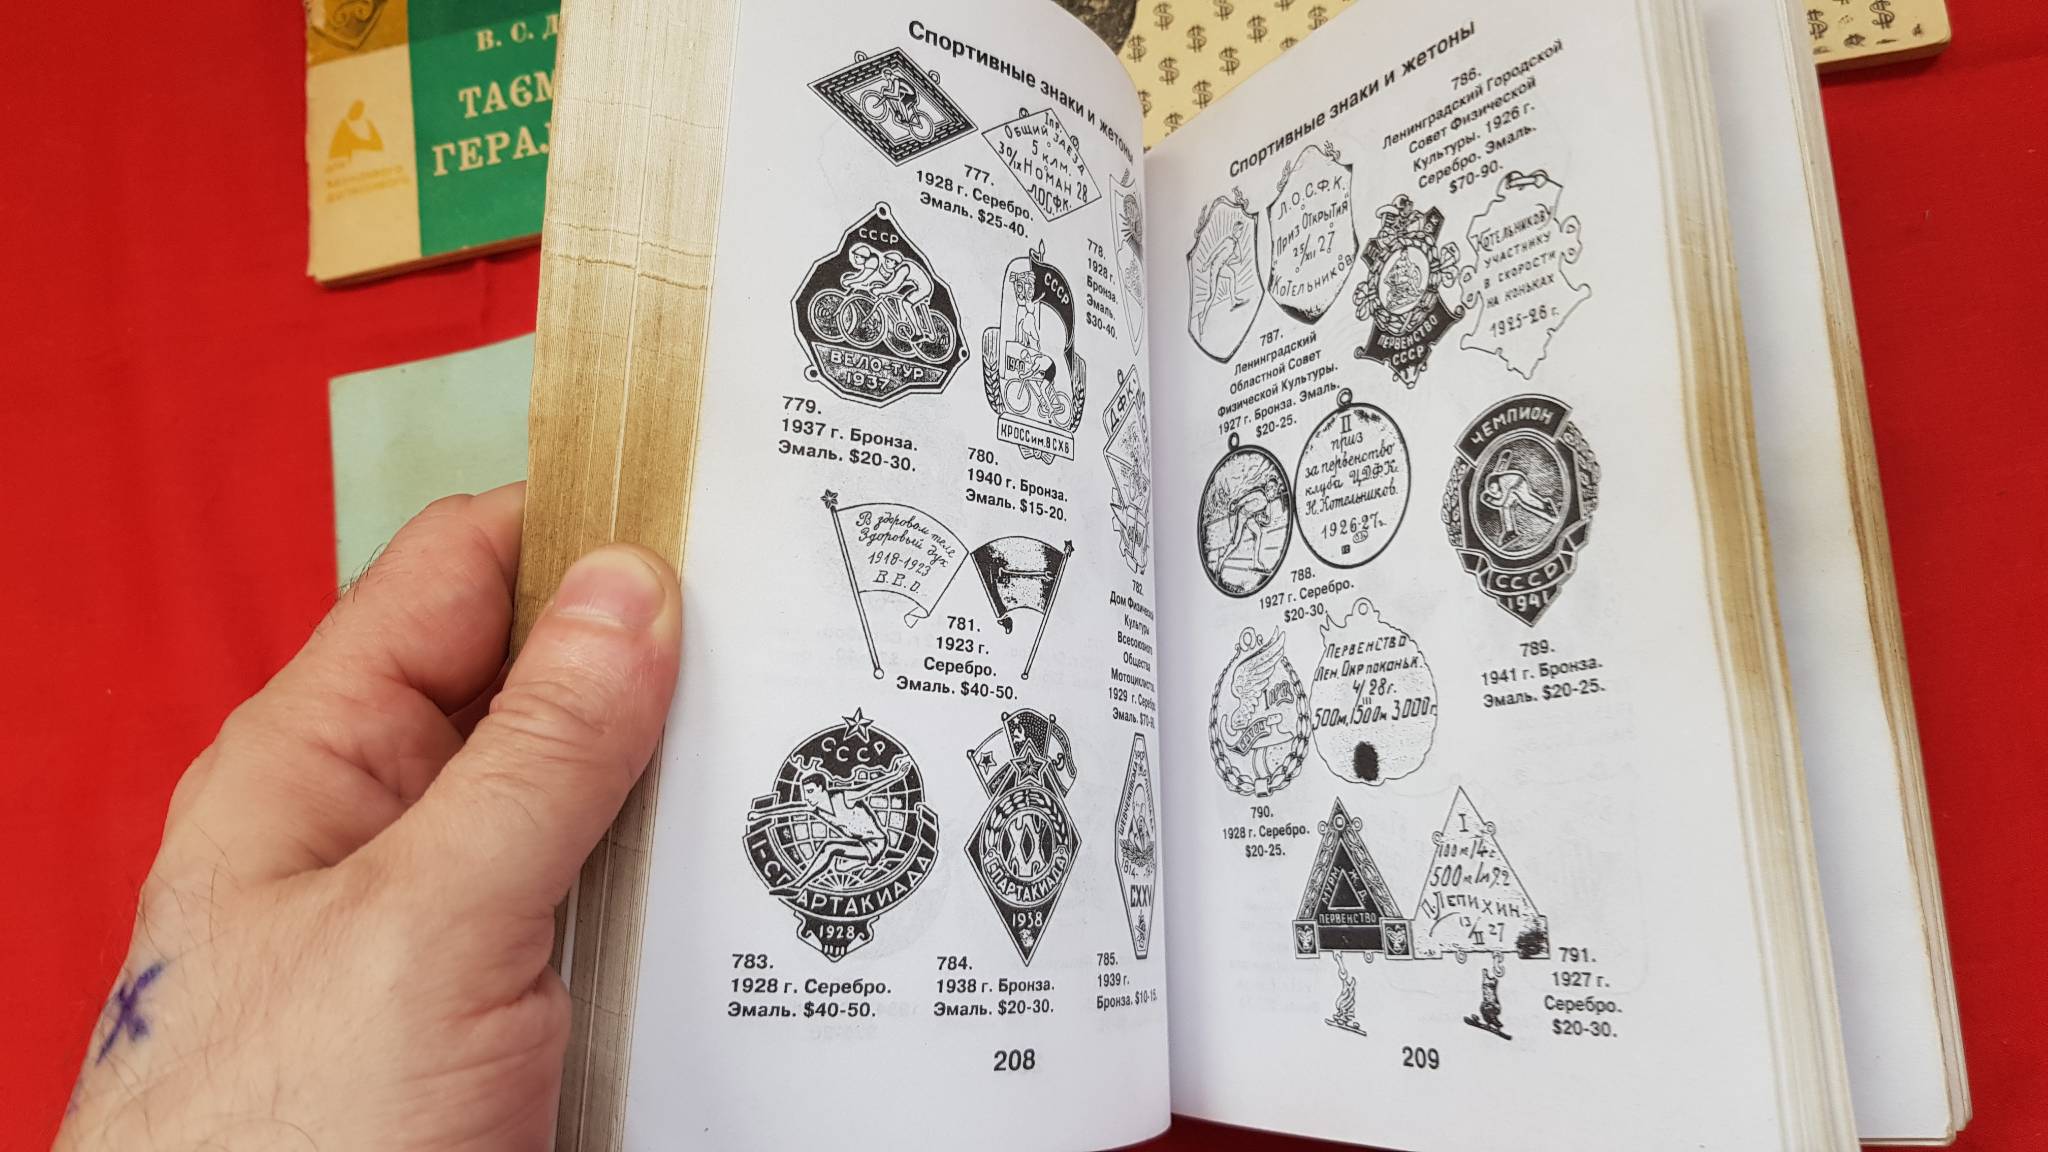 В. С. Д
ТАЄМ
ГЕРАЛ
Спортивные знаки и жетоны
Общий
ЗАЕЗД
5 КЛМ.
30/IX НОМАН 28
ЛОСФК.
777.
1928 г. Серебро.
Эмаль. $25-40.
778.
1928 г.
Бронза.
Эмаль.
$30-40.
СССР
ВЕЛО-ТУР
1937
779.
1937 г. Бронза.
Эмаль. $20-30.
СССР
1940
КРОСС им. ВСХВ
780.
1940 г. Бронза.
Эмаль. $15-20.
В здоровом теле
Здоровый дух
1918-1923
В.В.О.
781.
1923 г.
Серебро.
Эмаль. $40-50.
ДФК
782.
Дом Физической
Культуры
Всесоюзного
Общества
Мотоциклистов
1929 г. Серебро
Эмаль. $70-90.
СССР
I-СПАРТАКИАДА
1928
783.
1928 г. Серебро.
Эмаль. $40-50.
XX
СПАРТАКИАДА
1938
784.
1938 г. Бронза.
Эмаль. $20-30.
УРСР
814-
CXXV
785.
1939 г.
Бронза. $10-15.
208
Спортивные знаки и жетоны
786.
Ленинградский Городской
Совет Физической
Культуры. 1926 г.
Серебро. Эмаль.
$70-90.
Л.О.С.Ф.К.
Приз Открытия
25/XII 27
Котельников
787.
Ленинградский
Областной Совет
Физической Культуры.
1927 г. Бронза. Эмаль.
$20-25.
ПЕРВЕНСТВО
СССР
Котельникову
участнику
в скорости
на коньках
1925-26 г.
II
приз
за первенство
клуба ЦДФК.
Н. Котельников.
1926-27г.
788.
1927 г. Серебро.
$20-30.
ЧЕМПИОН
СССР
1941
789.
1941 г. Бронза.
Эмаль. $20-25.
Первенство
Лен. Окр по коньк.
4/III 28г.
500м, 1500м 3000г.
790.
1928 г. Серебро.
$20-25.
ПЕРВЕНСТВО
I
100м/14с
500м/1м 9.2
П. Лепихин
13/II 27
791.
1927 г.
Серебро.
$20-30.
209